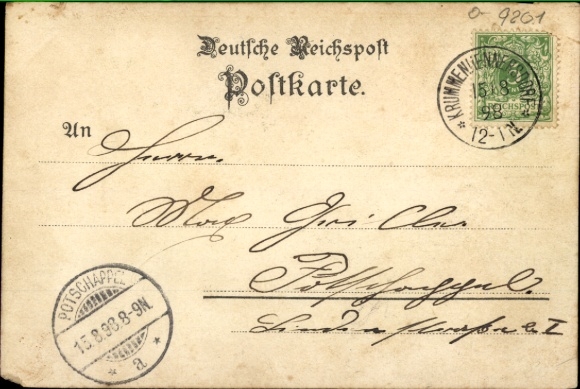 9201
Deutsche Reichspost
Postkarte.
KRUMMENHENNERSDORF
15.8
98
12-1N
REICHSPOST
An
Herrn
Max
Potschappel.
POTSCHAPPEL
15.8.98.8-9N
a